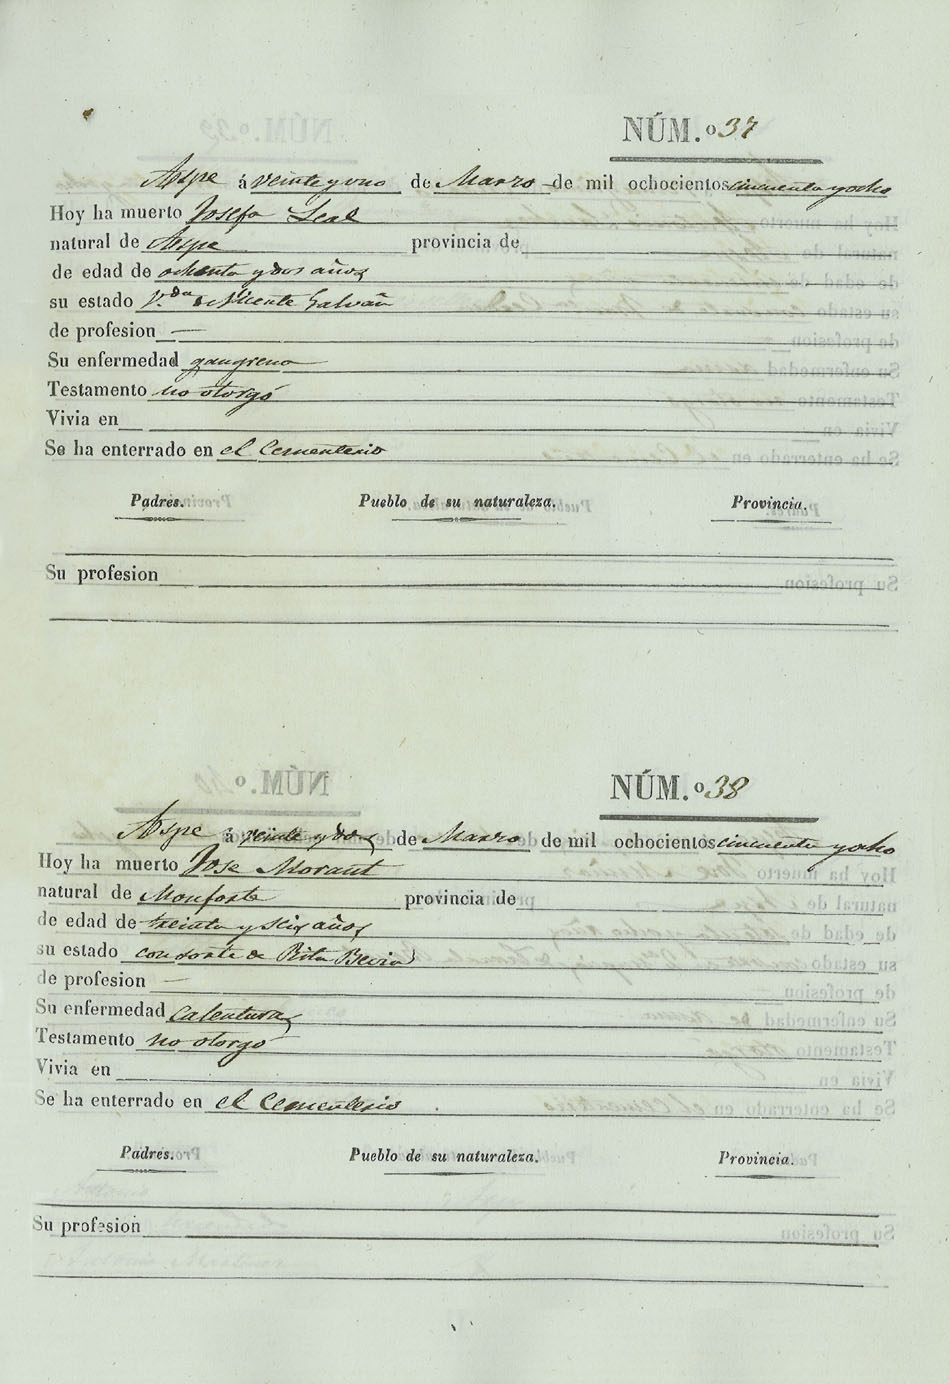 NÚM.º 37
Aspe á veinte y uno de Marzo de mil ochocientos cincuenta y ocho
Hoy ha muerto Josefa Leal
natural de Aspe provincia de
de edad de ochenta y dos años
su estado V.da de Vicente Galvañ
de profesion —
Su enfermedad gangrena
Testamento no otorgó
Vivia en
Se ha enterrado en el Cementerio
Padres. Pueblo de su naturaleza. Provincia.
Su profesion
NÚM.º 38
Aspe á veinte y dos de Marzo de mil ochocientos cincuenta y ocho
Hoy ha muerto Jose Morant
natural de Monforte provincia de
de edad de treinta y seis años
su estado consorte de Rita Bevia
de profesion —
Su enfermedad calentura
Testamento no otorgó
Vivia en
Se ha enterrado en el Cementerio
Padres. Pueblo de su naturaleza. Provincia.
Su profesion